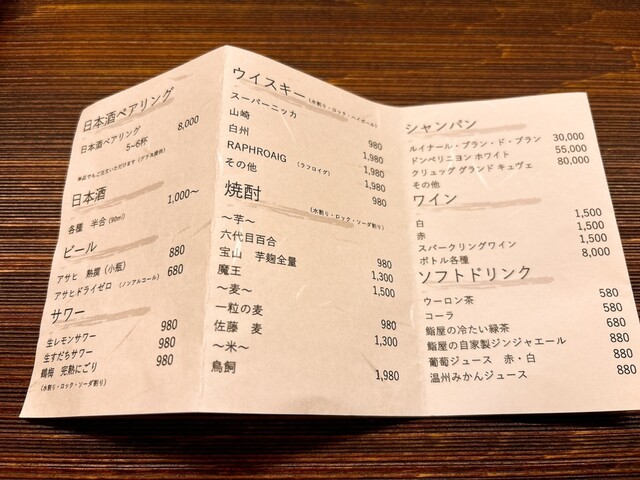 日本酒ペアリング
日本酒ペアリング 8,000
5~6杯
単品でもご注文いただけます(グラス提供)
日本酒
各種 半合(90ml) 1,000~
ビール
アサヒ 熟撰(小瓶) 880
アサヒドライゼロ(ノンアルコール) 680
サワー
生レモンサワー 980
生すだちサワー 980
鶴梅 完熟にごり 980
(水割り・ロック・ソーダ割り)
ウイスキー(水割り・ロック・ハイボール)
スーパーニッカ 980
山崎 1,980
白州 1,980
RAPHROAIG (ラフロイグ) 1,980
その他 980
焼酎
(水割り・ロック・ソーダ割り)
~芋~
六代目百合 980
宝山 芋麹全量 1,300
魔王 1,500
~麦~
一粒の麦 980
佐藤 麦 1,300
~米~
鳥飼 1,980
シャンパン
ルイナール・ブラン・ド・ブラン 30,000
ドンペリニヨン ホワイト 55,000
クリュッグ グランド キュヴェ 80,000
その他
ワイン
白 1,500
赤 1,500
スパークリングワイン 1,500
ボトル各種 8,000
ソフトドリンク
ウーロン茶 580
コーラ 580
鮨屋の冷たい緑茶 680
鮨屋の自家製ジンジャエール 880
葡萄ジュース 赤・白 880
温州みかんジュース 880